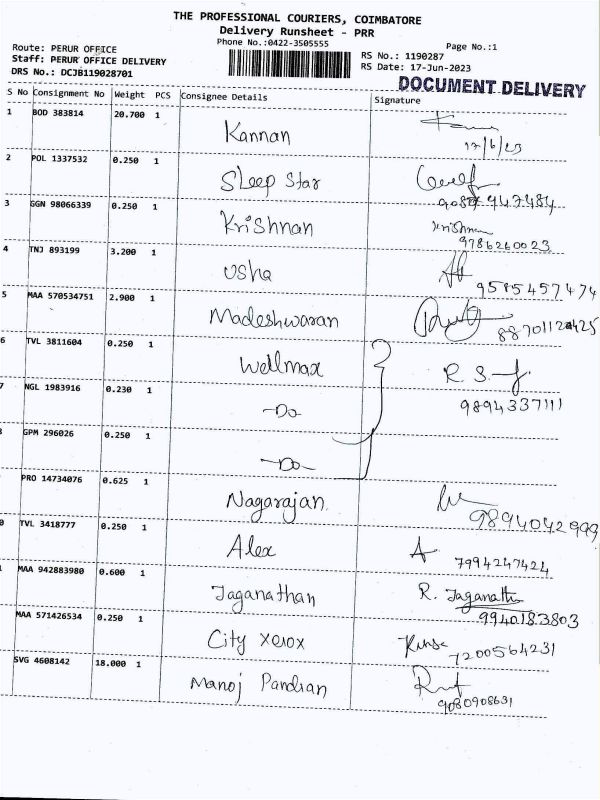 THE PROFESSIONAL COURIERS, COIMBATORE
Delivery Runsheet - PRR
Phone No.:0422-3505555
Page No.:1
Route: PERUR OFFICE
Staff: PERUR OFFICE DELIVERY
DRS No.: DCJB119028701
RS No.: 1190287
RS Date: 17-Jun-2023
DOCUMENT DELIVERY
S No Consignment No Weight PCS Consignee Details Signature
1 BOD 383814 20.700 1 Kannan
17/6/23
2 POL 1337532 0.250 1 Sleep Star
3 GGN 98066339 0.250 1 Krishnan Krishnan
9786260023
4 TNJ 893199 3.200 1 Usha
9595457474
5 MAA 570534751 2.900 1 Madeshwaran
6 TVL 3811604 0.250 1 Wellmax R. S
7 NGL 1983916 0.230 1 -Do- 9894337111
GPM 296026 0.250 1 -Do-
PRO 14734076 0.625 1 Nagarajan
9894042999
0 TVL 3418777 0.250 1 Alex A 7994247424
MAA 942883980 0.600 1 Jaganathan R. Jaganath
9940183803
MAA 571426534 0.250 1 City Xerox
7200564231
SVG 4608142 18.000 1 Manoj Pandian
9080908631